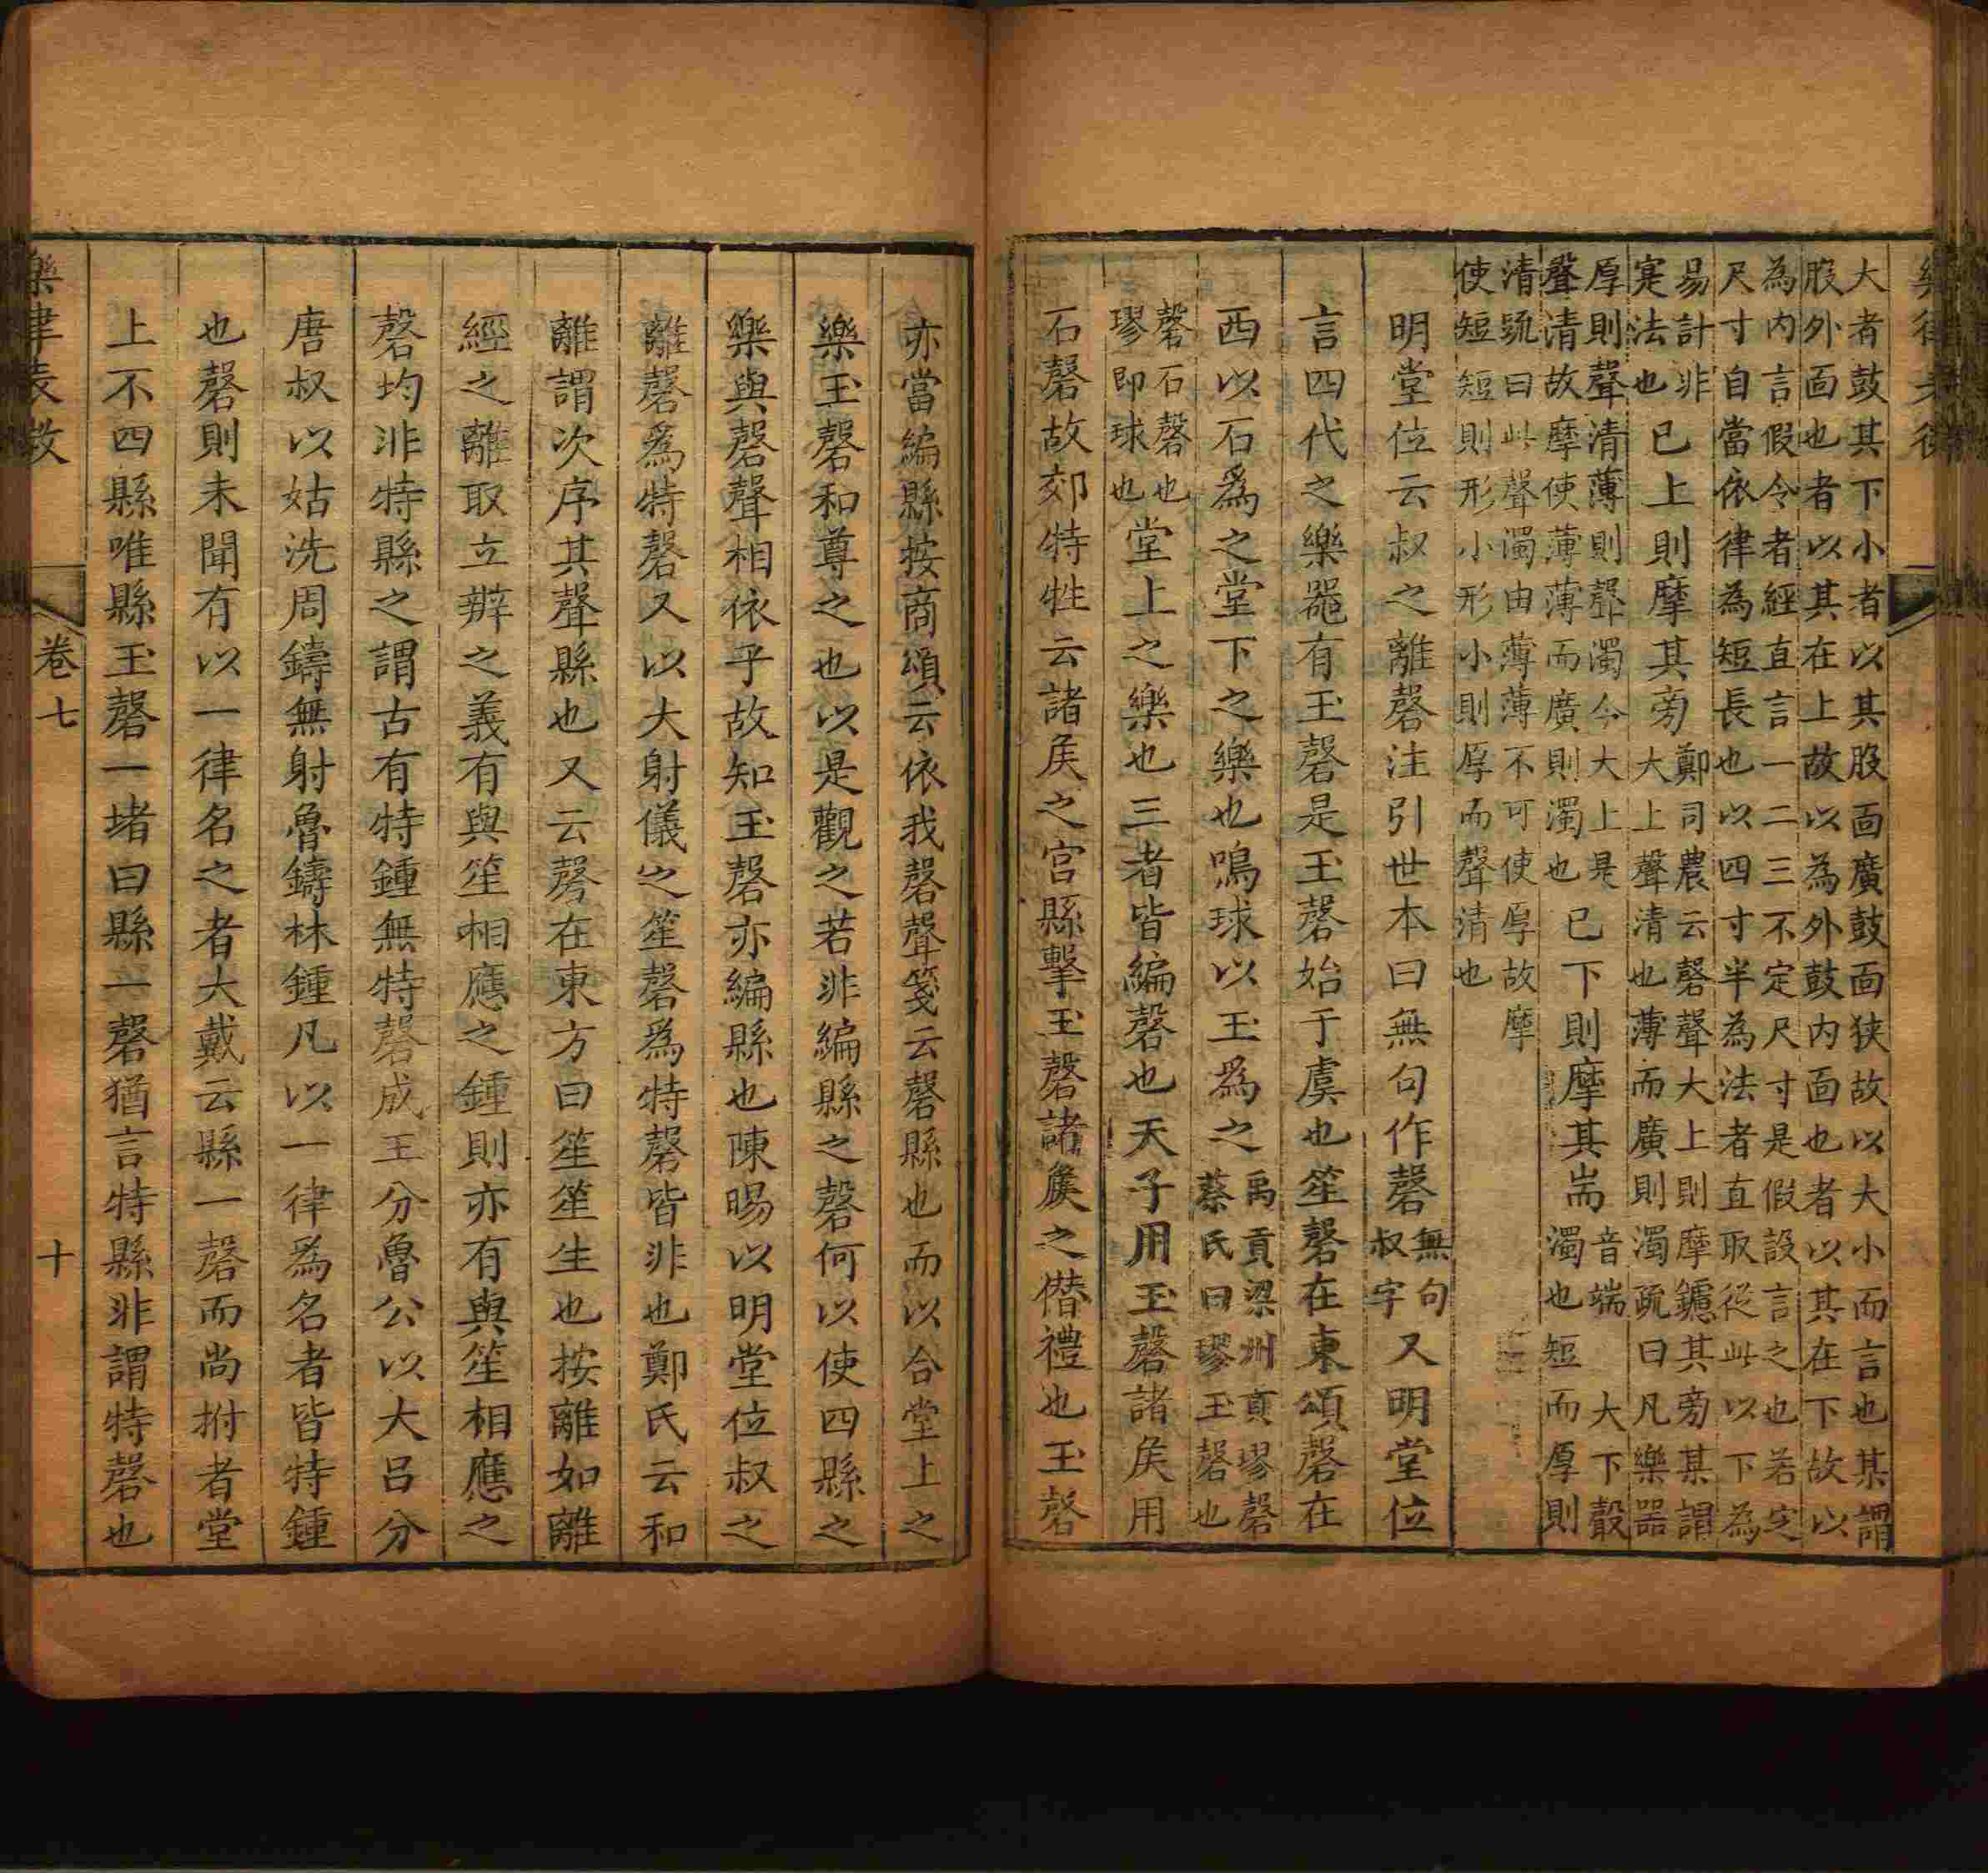 樂律表微
大者鼓其下小者以其股面廣鼓面狭故以大小而言也某謂
股外面也者以其在上故以為外鼓内面也者以其在下故以
為内言假令者經直言一二三不定尺寸是假設言之也若定
尺寸自當依律為短長也以四寸半為法者直取從此以下為
易計非寔法也已上則摩其旁鄭司農云磬聲大上則摩鑢其旁某謂大上聲清也薄而廣則濁疏曰凡樂器
厚則聲清薄則聲濁今大上是聲清故摩使薄薄而廣則濁也已下則摩其耑音端 大下聲濁也短而厚則
清䟽曰此聲濁由薄薄不可使厚故摩
使短短則形小形小則厚而聲清也
明堂位云叔之離磬注引世本曰無句作磬無句叔字又明堂位
言四代之樂噐有玉磬是玉磬始于虞也笙磬在東頌磬在
西以石爲之堂下之樂也鳴球以玉爲之禹貢梁州貢璆磬蔡氏曰璆玉磬也
磬石磬也璆即球也堂上之樂也三者皆編磬也天子用玉磬諸矦用
石磬故郊特牲云諸矦之宫縣擊玉磬諸矦之僭禮也玉磬
亦當編縣按商頌云依我磬聲箋云磬縣也而以合堂上之
樂玉磬和尊之也以是觀之若非編縣之磬何以使四縣之
樂與磬聲相依乎故知玉磬亦編縣也陳暘以明堂位叔之
離磬爲特磬又以大射儀之笙磬爲特磬皆非也鄭氏云和
離謂次序其聲縣也又云磬在東方曰笙笙生也按離如離
經之離取立辦之義有與笙相應之鍾則亦有與笙相應之
磬均非特縣之謂古有特鍾無特磬成王分魯公以大呂分
唐叔以姑洗周鑄無射魯鑄林鍾凡以一律爲名者皆特鍾
也磬則未聞有以一律名之者大戴云縣一磬而尚拊者堂
上不四縣唯縣玉磬一堵曰縣一磬猶言特縣非謂特磬也
樂律表微
卷七
十